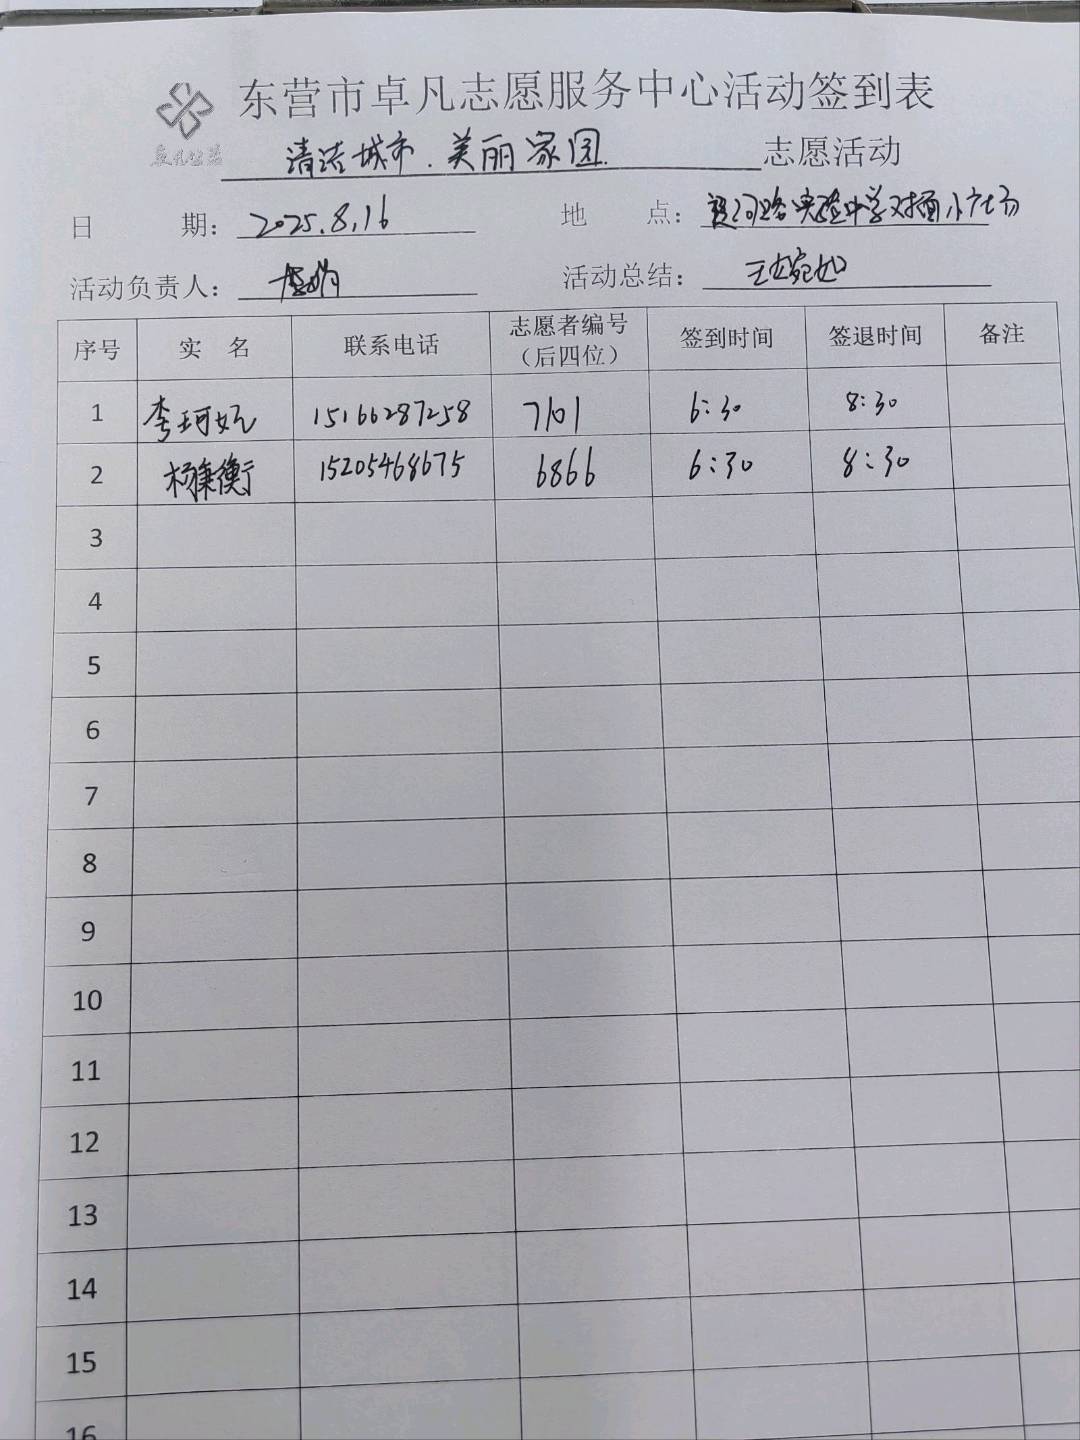 东营市卓凡志愿服务中心活动签到表
卓凡公益
清洁城市.美丽家园. 志愿活动
日 期： 2025.8.16 地 点： 实验中学对面小广场
活动负责人： 活动总结： 王宛如
序号 实 名 联系电话 志愿者编号（后四位） 签到时间 签退时间 备注
1 李珂妮 15166287258 7101 6:30 8:30
2 杨秉衡 15205468675 6866 6:30 8:30
3
4
5
6
7
8
9
10
11
12
13
14
15
16